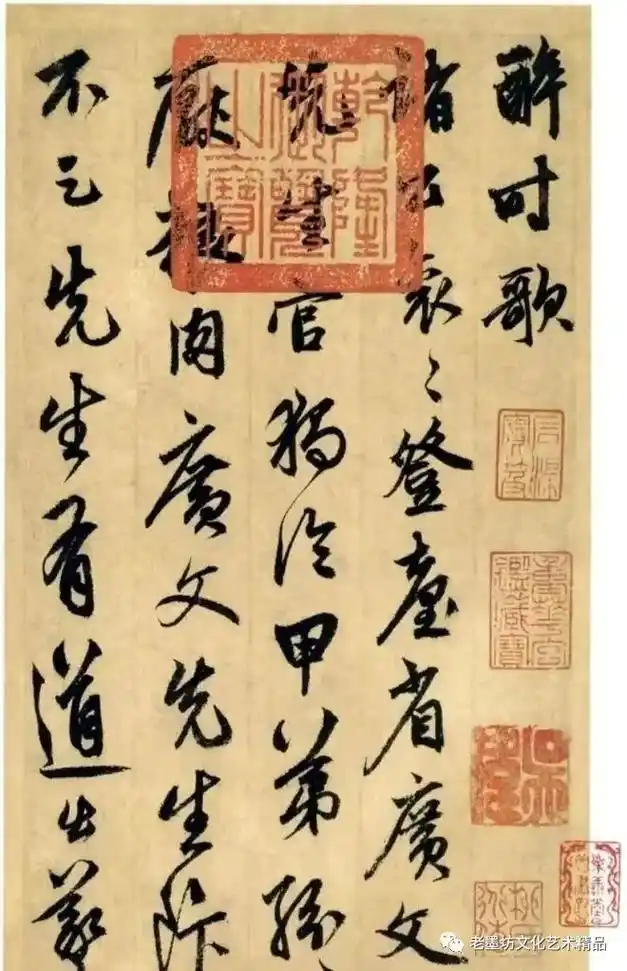 醉时歌
諸公衮〻登臺省廣文
先生官獨冷甲第紛
厭粱肉廣文先生飯
不足先生有道出羲
乾隆御覽之寶
石渠寶笈
重華宮鑑藏寶
老墨坊文化艺术精品